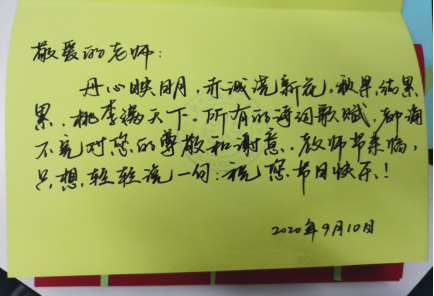 敬爱的老师：
丹心映日月，赤诚浇新花。秋果结累
累，桃李满天下。所有的诗词歌赋，都诵
不完对您的尊敬和谢意。教师节来临，
只想轻轻说一句：祝您节日快乐！
2020年9月10日